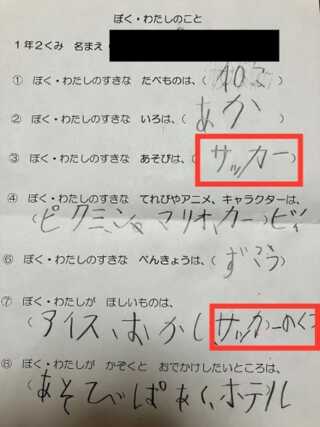 ぼく・わたしのこと
1年2くみ 名まえ
① ぼく・わたしのすきな たべものは、( )
② ぼく・わたしのすきな いろは、(あか)
③ ぼく・わたしのすきな あそびは、(サッカー)
④ ぼく・わたしのすきな てれびやアニメ、キャラクターは、
(ピクミン、マリオ、カービィ)
⑥ ぼく・わたしのすきな べんきょうは、(ずこう)
⑦ ぼく・わたしが ほしいものは、
(アイス、おかし、サッカーのくつ
⑧ ぼく・わたしが かぞくと おでかけしたいところは、
(あそてべぱあく、ホテル